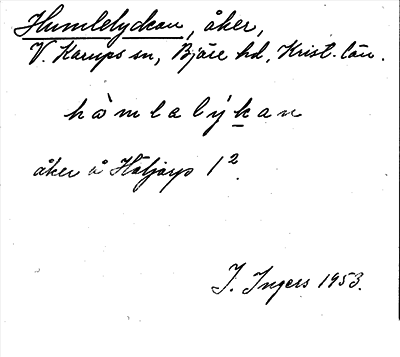 Humlelyckan, åker,
V. Karups sn, Bjäre hd, Krist. län.
hòmlalýkan
åker å Häljarp 1².
I. Ingers 1953.